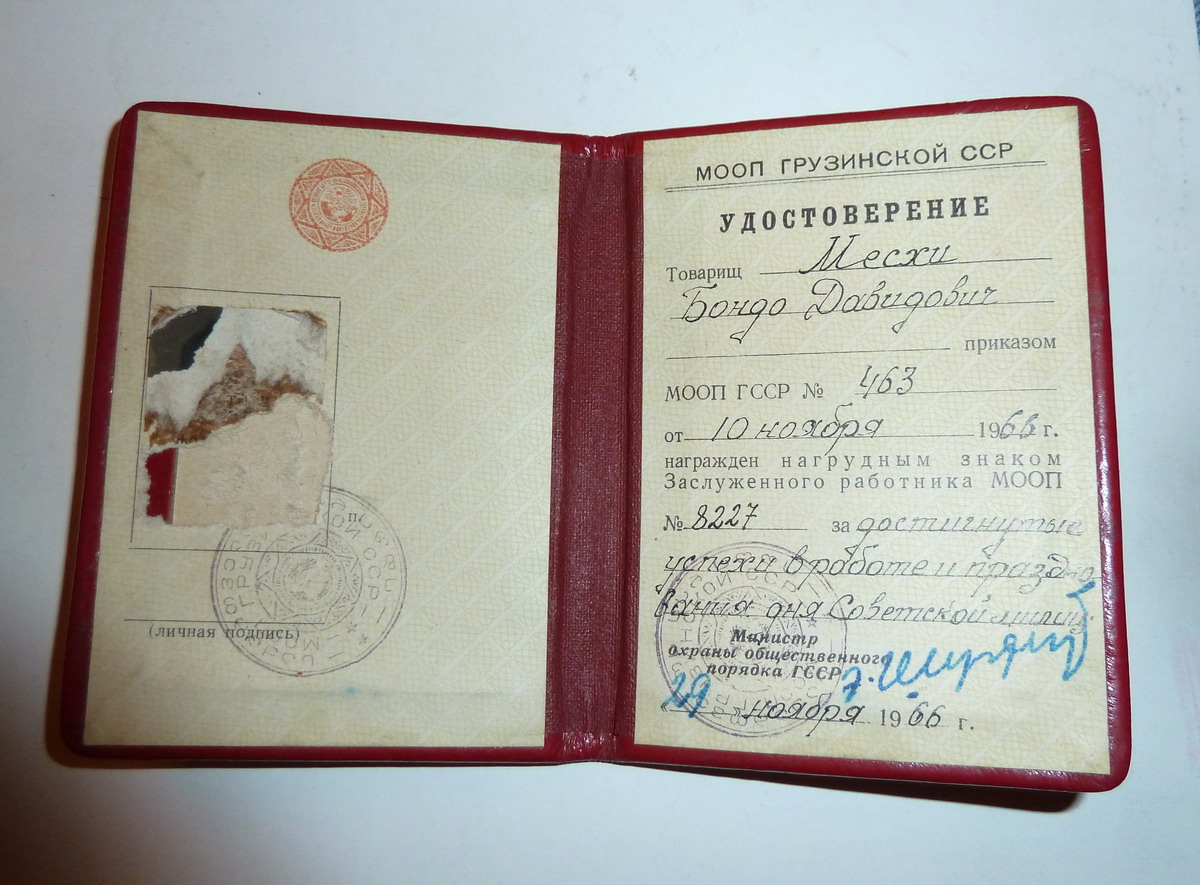 (личная подпись)
МООП ГРУЗИНСКОЙ ССР
УДОСТОВЕРЕНИЕ
Товарищ Месхи
Бондо Давидович
приказом
МООП ГССР № 463
от 10 ноября 1966 г.
награжден нагрудным знаком
Заслуженного работника МООП
№ 8227 за достигнутые
успехи в работе и праздно
вания дня Советской милиц
Министр
охраны общественного
порядка ГССР
29 ноября 1966 г.